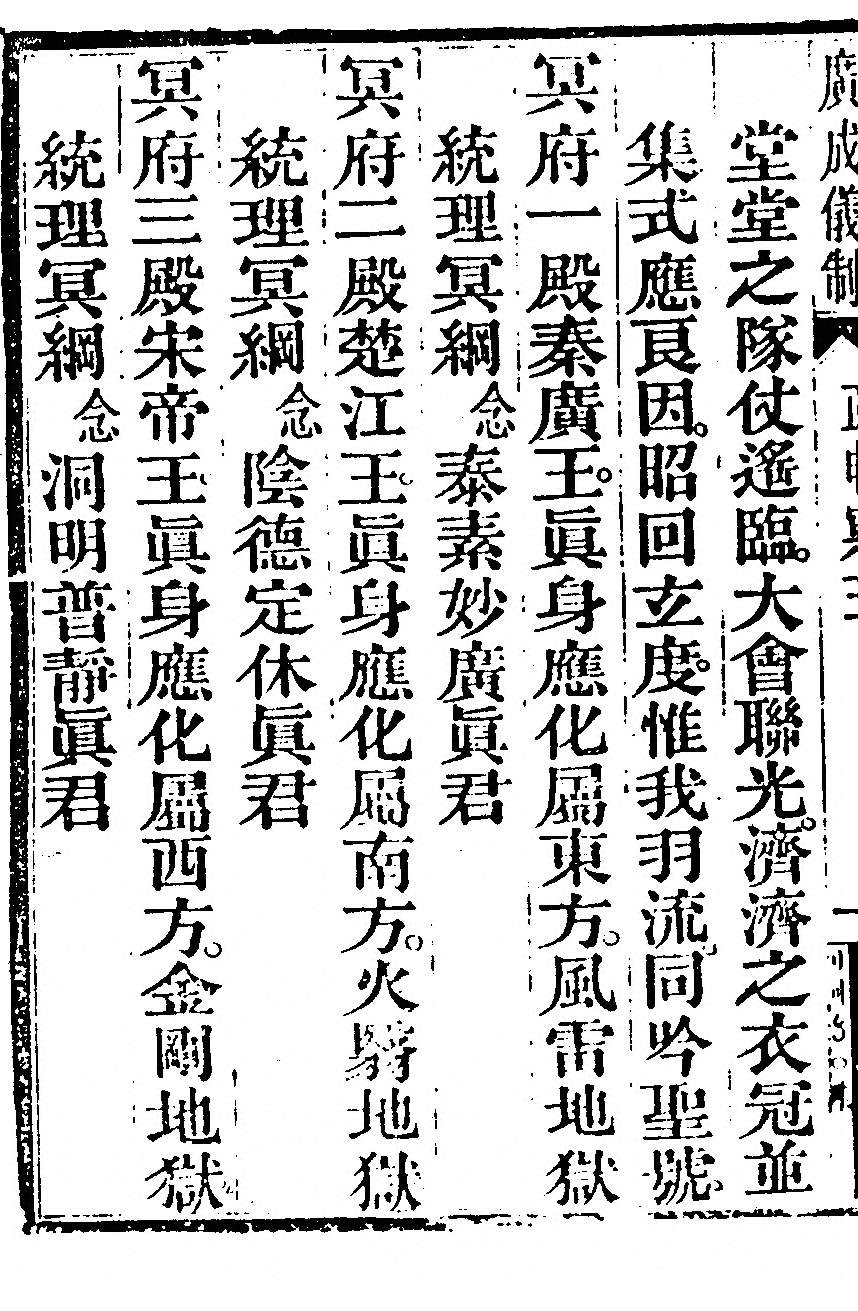 廣成儀制
堂堂之隊仗遙臨。大會聯光。濟濟之衣冠並
集式應良因。昭回玄度。惟我羽流。同吟聖號。
冥府一殿秦廣王。眞身應化屬東方。風雷地獄
統理冥綱 念 泰素妙廣眞君
冥府二殿楚江王。眞身應化屬南方。火翳地獄
統理冥綱 念 陰德定休眞君
冥府三殿宋帝王。眞身應化屬西方。金剛地獄
統理冥綱 念 洞明普靜眞君